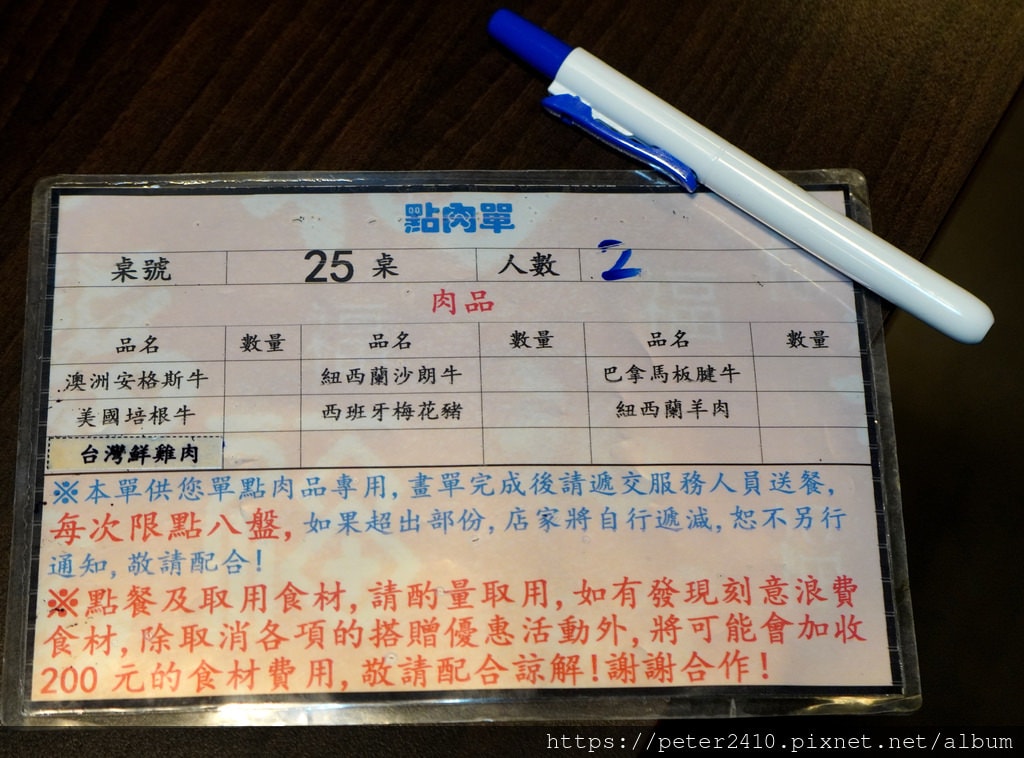 點肉單
桌號 25 桌 人數 2
肉品
品名 數量 品名 數量 品名 數量
澳洲安格斯牛 紐西蘭沙朗牛 巴拿馬板腱牛
美國培根牛 西班牙梅花豬 紐西蘭羊肉
台灣鮮雞肉
※本單供您單點肉品專用,畫單完成後請遞交服務人員送餐,
每次限點八盤,如果超出部份,店家將自行遞減,恕不另行
通知,敬請配合!
※點餐及取用食材,請酌量取用,如有發現刻意浪費
食材,除取消各項的搭贈優惠活動外,將可能會加收
200 元的食材費用,敬請配合諒解!謝謝合作!
https://peter2410.pixnet.net/album